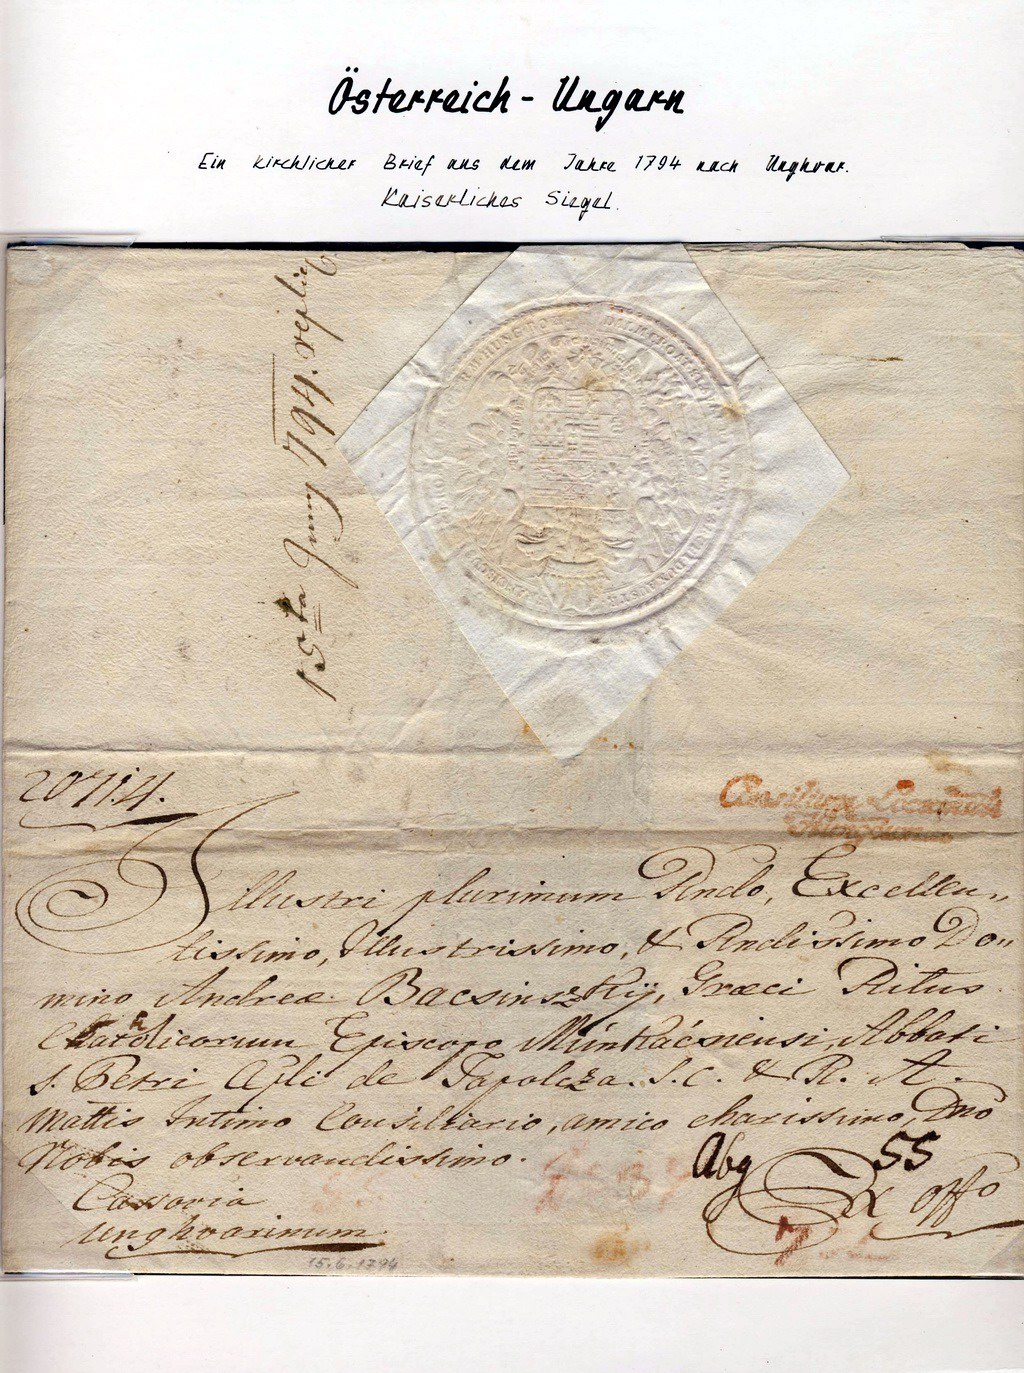 Österreich - Ungarn
Ein kirchlicher Brief aus dem Jahre 1794 nach Unghvar.
Kaiserliches Siegel.
15ta Juny 794.
HUNG BO DALM CROAT SLAV
2071.4.
Consilium Locumtenle
Illustri plurimum Rndo, Excellen„
tissimo, Illustrissimo, & Rndissimo Do„
mino Andreæ Bacsinszkÿ, Græci Ritus
Catholicorum Episcopo Munkácsiensi, Abbati
S. Petri Apli de Tapolcza. S. C. & R. A.
Mattis Intimo Consiliario, amico charissimo, Dno
Nobis observandissimo.
Cassovia
Unghvarinum
Abg 55
Ex offo
15.6.1794